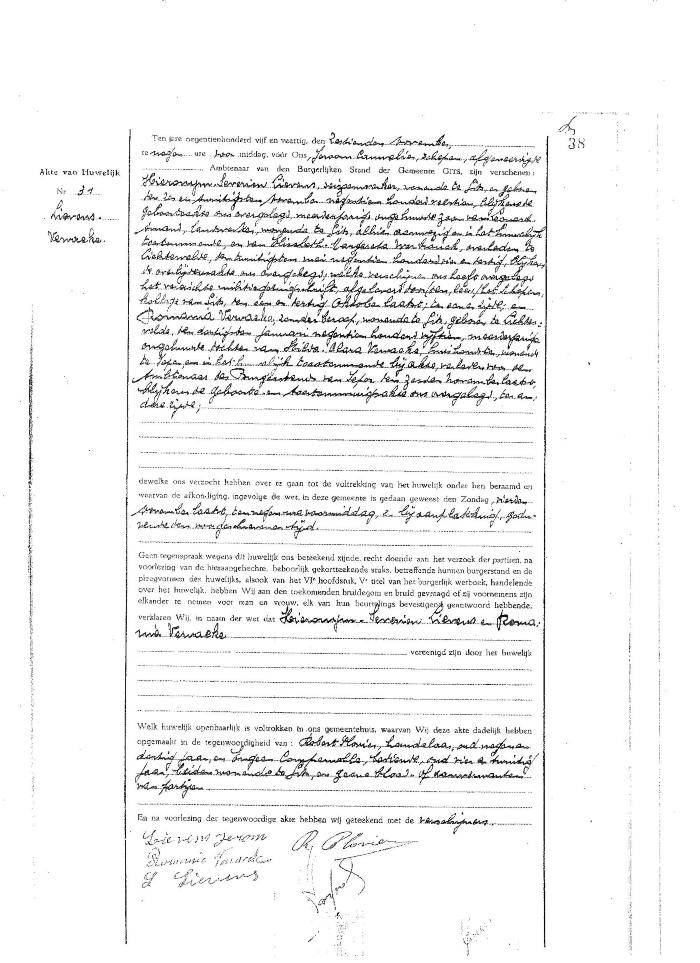 38
Akte van Huwelijk
Nr 31
Lievens
Verwaeke.
Ten jare negentienhonderd vijf en veertig, den zestienden November,
te negen ure voor middag, vóór Ons, Jeroom Cauwelier, schepen, afgevaardigde
Ambtenaar van den Burgerlijken Stand der Gemeente GITS, zijn verschenen:
Hieronymus-Severien Lievens, wonende te Gits, en geboren
den en twintigsten November negentien honderd veertien, blijkens de
geboorteakte ons overgelegd, meerderjarige ongehuwde zoon van Leonard
Amand, landwerker, wonende te Gits, alhier aanwezig en in het huwelijk
toestemmende, en van Elisabeth overleden te
Lichtervelde, den twintigsten mei negentien honderd vier en dertig, blijkens
de overlijdensakte ons overgelegd, welke verschijner ons heeft overgelegd
het vereischte afgeleverd door het schepen-
kollege van Gits, den een en dertig Oktober laatst; ter eener zijde, en
Romania Verwaeke, zonder beroep, wonende te Gits, geboren te Lichter-
velde, den dertigsten januari negentien honderd vijftien, meerderjarige
ongehuwde dochter van Clara Verwaeke, wonende
te Ieper, en in het huwelijk toestemmende bij akte, verleden voor den
Ambtenaar des Burgerstands van Ieper den zesden november laatst,
blijkens de geboorte en toestemmingsakte ons overgelegd, ter an-
dere zijde;
dewelke ons verzocht hebben over te gaan tot de voltrekking van het huwelijk onder hen beraamd en
waarvan de afkondiging, ingevolge de wet, in deze gemeente is gedaan geweest den Zondag, vierden
November laatst, ten negen ure voormiddag, en bij aanplakking, gedu-
rende den voorgeschreven tijd.
Geen tegenspraak wegens dit huwelijk ons beteekend zijnde, recht doende aan het verzoek der partijen, na
voorlezing der hieraangehechte, behoorlijk gekortteekende stuks, betreffende hunnen burgerstand en de
pleegvormen des huwelijks, alsook van het VIe hoofdstuk, Ve titel van het burgerlijk werboek, handelende
over het huwelijk, hebben Wij aan den toekomenden bruidegom en bruid gevraagd of zij voornemens zijn
elkander te nemen voor man en vrouw, elk van hun beurtelings bevestigend geantwoord hebbende,
verklaren Wij, in naam der wet dat Hieronymus-Severien Lievens en Roma-
nia Verwaeke
vereenigd zijn door het huwelijk
Welk huwelijk openbaarlijk is voltrokken in ons gemeentehuis, waarvan Wij deze akte dadelijk hebben
opgemaakt in de tegenwoordigheid van: Robert Plovier, handelaar, oud negen en
dertig jaar, en Compernolle, bediende, oud vier en twintig
jaar, beiden wonende te Gits, en geene bloed- of aanverwanten
van partijen
En na voorlezing der tegenwoordige akte hebben wij geteekend met de verschijners.
Lievens Jerom
Romanie Verwaeke
L Lievens
R. Plovier